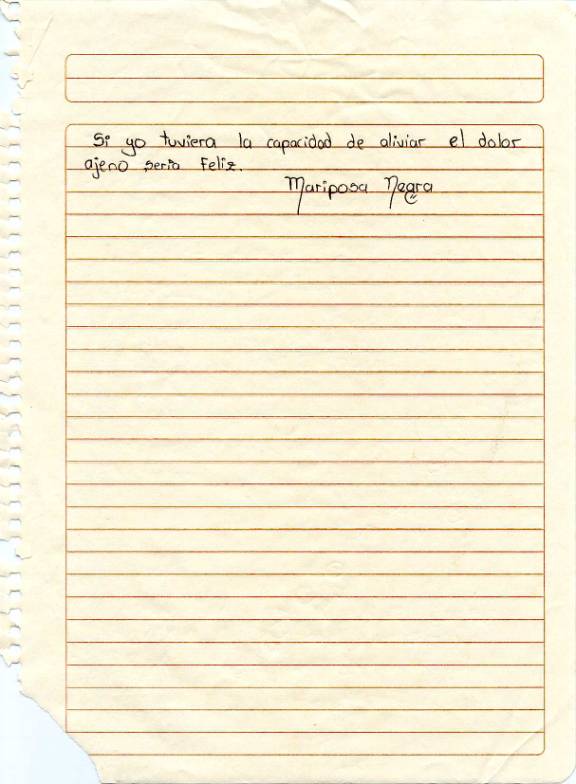 Si yo tuviera la capacidad de aliviar el dolor
ajeno seria feliz.
Mariposa Negra